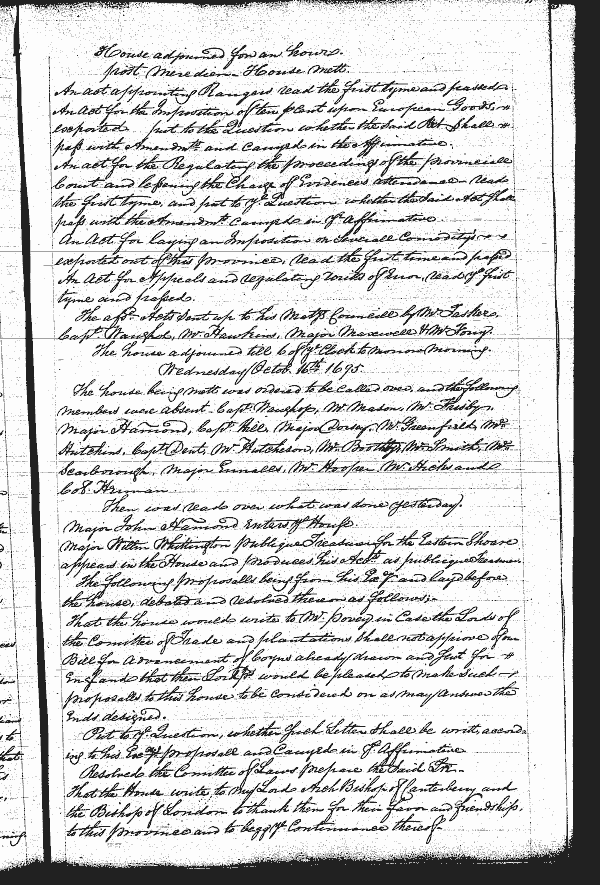 House adjourned for an hour.
post meredian House mett.
An act appointing Rangers read the first tyme and passed
An Act for the Imposition of ten p Cent upon European Goods
exported put to the Question whether the said Act Shall
pass with Amendmts and Carryed in the Affirmative.
An act for the Regulating the proceeding of the Provinciall
Court and lessening the Charge of Evidences attendance read
the first tyme, and put to ye Question whether the said Act Shall
pass with the Amendmt Carryed in ye Affirmative
An Act for laying an Imposition on Severall Comoditys
exported out of this Province, read the first time and passd
An Act for Appeals and regulating writts of Error, read ye first
tyme and passed.
The afsd Acts Sent up to his Matys Councill by Mr Tasker,
Capt Hawkins, Major Maxwell & Mr
The house adjourned till 6 of ye Clock to morrow morning.
Wednesday Octob. 16th 1695.
The house being mett was ordered to be Called over, and the following
members were absent. Capt Mr Mason, Mr Frisby,
Major Hamond, Capt Hill, Major Dorsey, Mr Greenfield, Mr
Hutchins, Capt Dent, Mr Hutcheson, Mr Mr Smith, Mr
Scarborough, Major Ennalls, Mr Hooper Mr Hicks and
Col. Herman
Then was read over what was done yesterday.
Major John Hamond Enters ye House
Major Willm Whittington publique Treasurer for the Eastern Shoare
appears in the House and produces his Acct as publicque Treasurer.
The following proposalls being from his Exy and layd before
the house, debated and resolved thereon as follows;
That the house would write to Mr Povey in Case the Lords of
the Comittee of Trade and plantations shall not approve of our
Bill for Advancement of Coyns already drawn and Sent for
England that their Lordps would be pleased to make Such
proposalls to this house to be Considered on as may answer the
Ends designed.
Put to ye Question, whether Such Letter Shall be writt, accord
ing to his Excys proposall and Carryed in ye Affirmative
Resolved the Comittee of Laws prepare the said Lre.
That the House write to my Lord Arch Bishop of Canterbury and
the Bishop of London to thank them for their favor and friendship,
to this province and to begg ye Continuance thereof